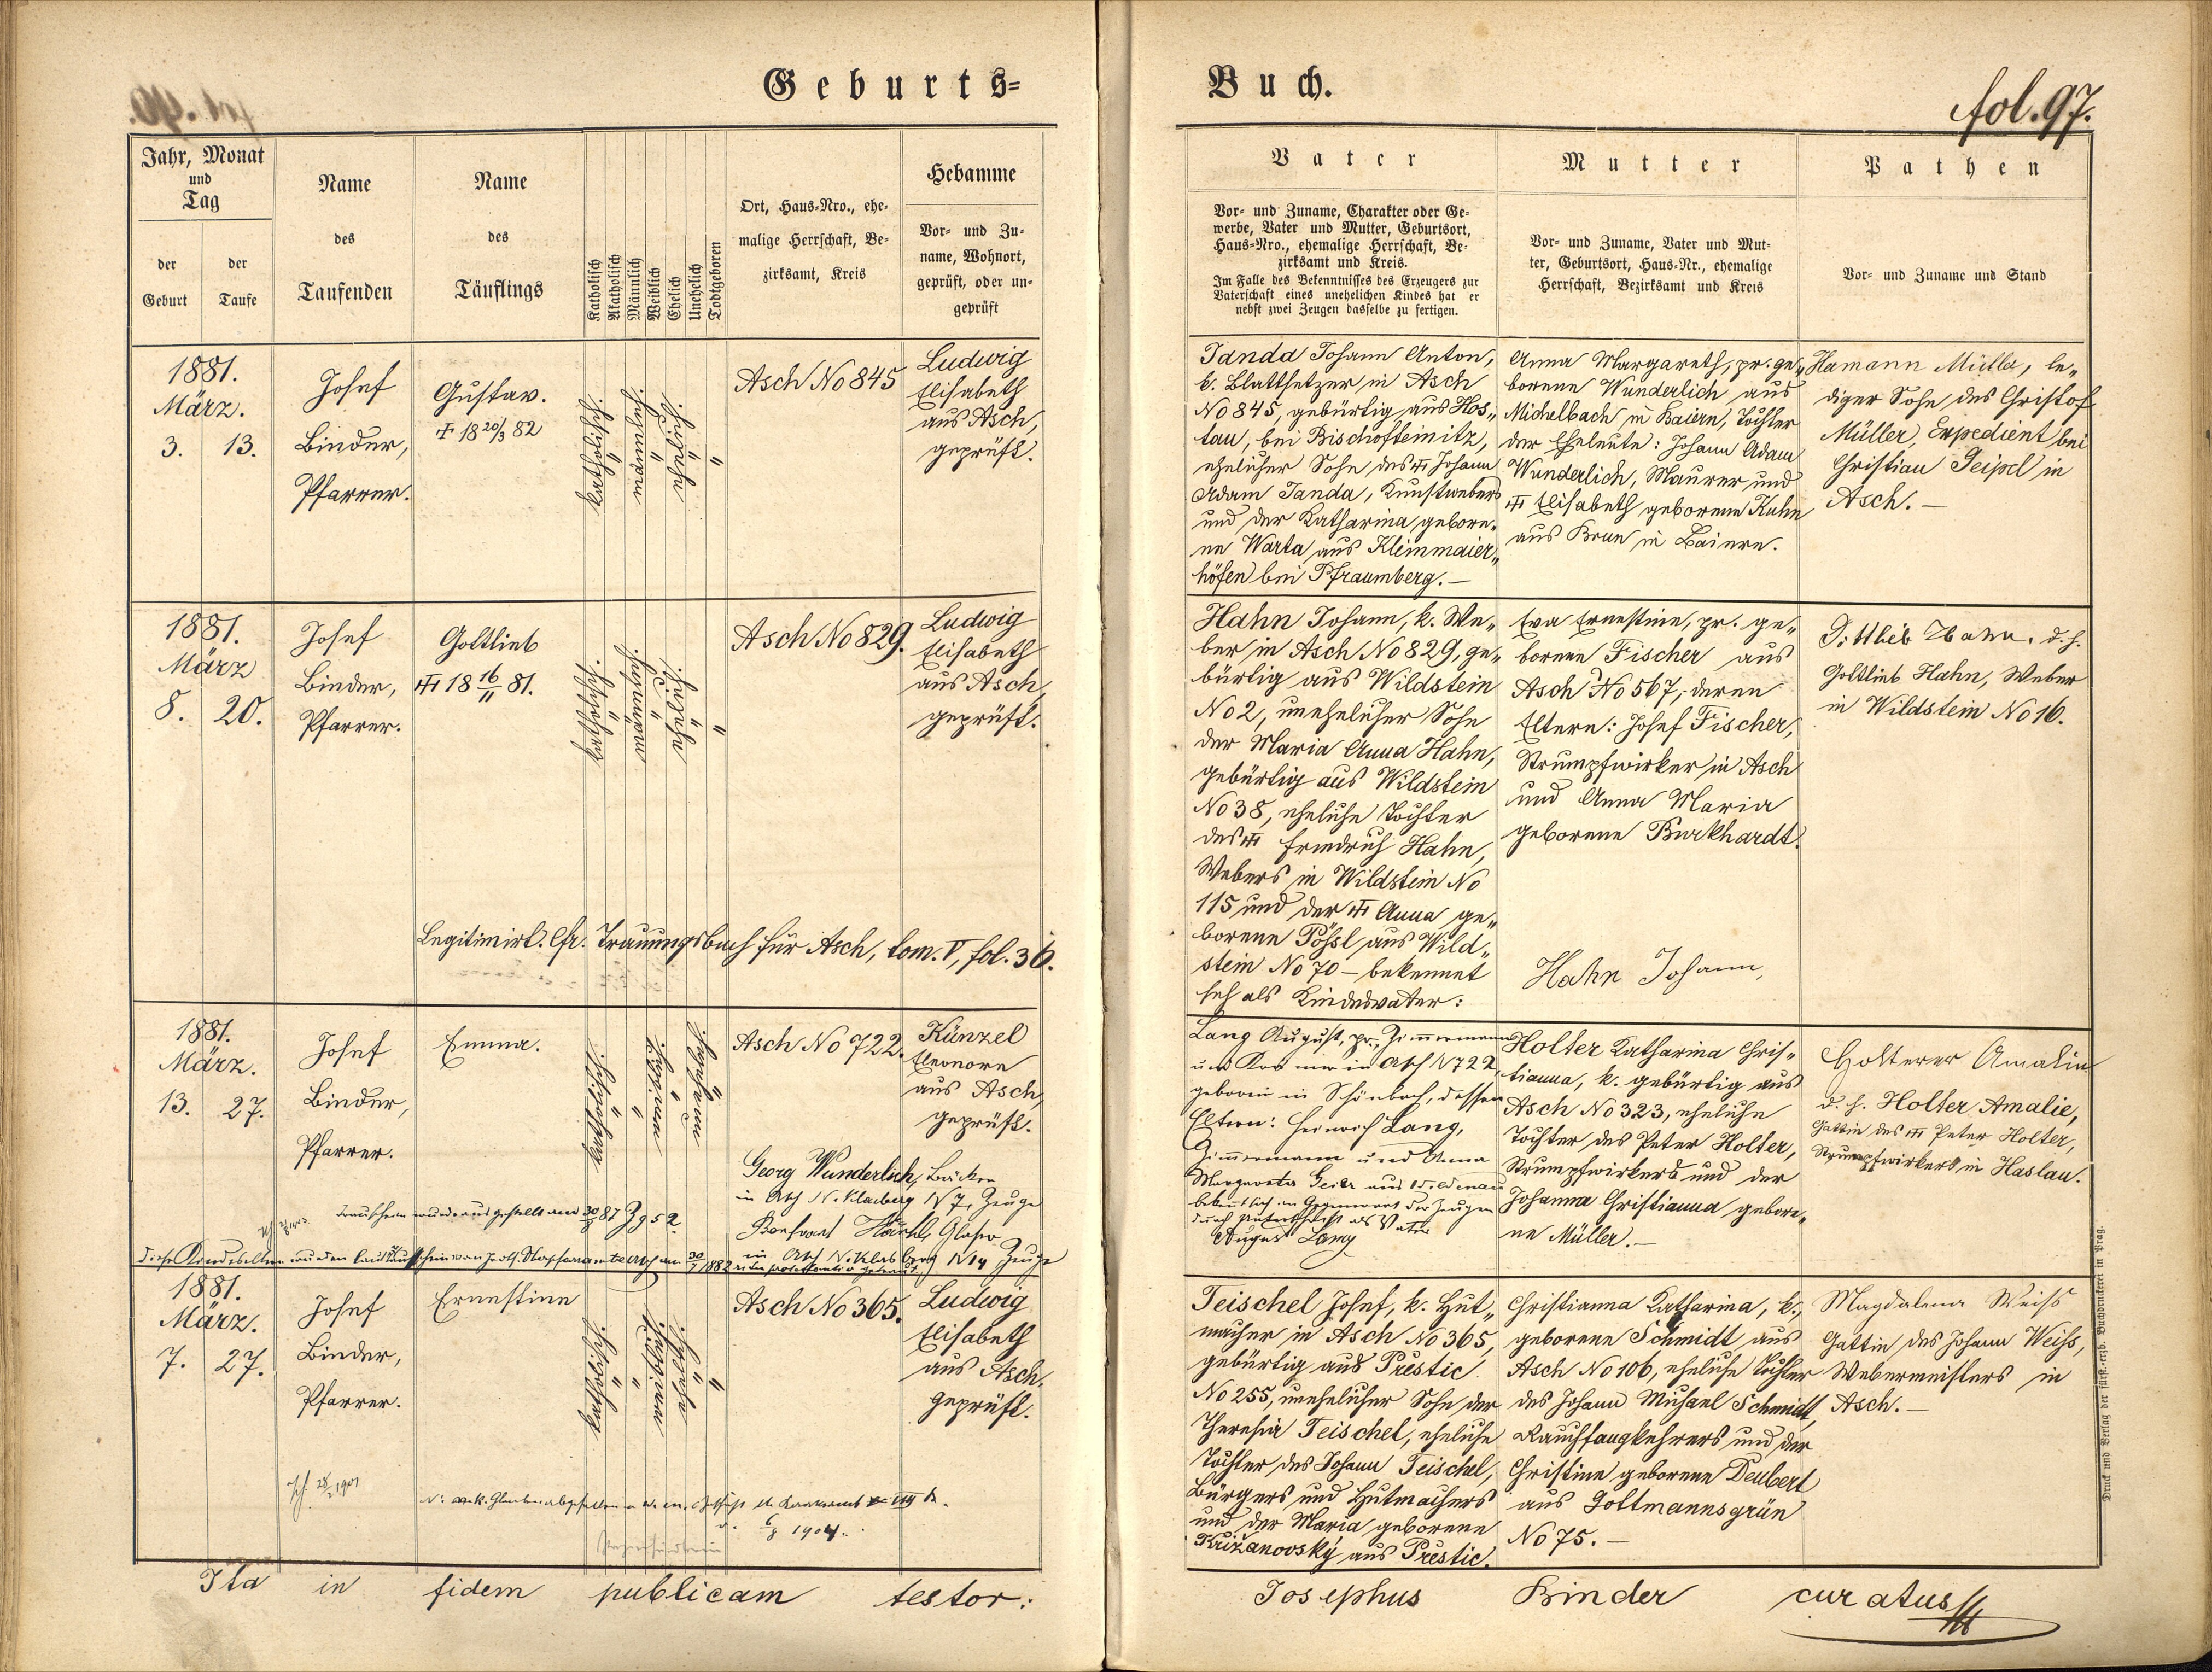 Geburts=
Buch.
fol. 97.
Jahr, Monat
und
Tag
der
Geburt
der
Taufe
Name
des
Taufenden
Name
des
Täuflings
Katholisch
Akatholisch
Männlich
Weiblich
Ehelich
Unehelich
Todtgeboren
Ort, Haus-Nro., ehe-
malige Herrschaft, Be-
zirksamt, Kreis
Hebamme
Vor- und Zu-
name, Wohnort,
geprüft, oder un-
geprüft
Vater
Vor- und Zuname, Charakter oder Ge-
werbe, Vater und Mutter, Geburtsort,
Haus-Nro., ehemalige Herrschaft, Be-
zirksamt und Kreis.
Im Falle des Bekenntnisses des Erzeugers zur
Vaterschaft eines unehelichen Kindes hat er
nebst zwei Zeugen dasselbe zu fertigen.
Mutter
Vor- und Zuname, Vater und Mut-
ter, Geburtsort, Haus-Nr., ehemalige
Herrschaft, Bezirksamt und Kreis
Pathen
Vor- und Zuname und Stand
1881.
März.
3. 13.
Josef
Binder,
Pfarrer.
Gustav.
† 18 20/3 82
katholisch.
"
männlich.
"
ehelich.
"
"
Asch No 845
Ludwig
Elisabeth
aus Asch,
geprüft.
Janda Johann Anton,
k. Blattsetzer in Asch
No 845, gebürtig aus Hos„
tau, bei Bischofteinitz,
ehelicher Sohn des † Johann
Adam Janda, Kunstwebers
und der Katharina gebore„
ne Warta aus Kleinmaier„
höfen bei Pfraumberg. —
Anna Margareth, pr. ge„
borene Wunderlich aus
Michelbach in Baiern, Tochter
der Eheleute: Johann Adam
Wunderlich, Maurer und
† Elisabeth geborene Kuhn
aus Brun in Baiern.
Hamann Müller, le„
diger Sohn des Christof
Müller, Expedient bei
Christian Geipel in
Asch. —
1881.
März
8. 20.
Josef
Binder,
Pfarrer.
Gottlieb
† 18 16/11 81.
katholisch.
"
männlich.
"
ehelich.
"
"
Asch No 829.
Ludwig
Elisabeth
aus Asch,
geprüft.
Legitimirt. Cfr. Trauungsbuch für Asch, tom. V, fol. 36.
Hahn Johann, k. We„
ber in Asch No 829, ge„
bürtig aus Wildstein
No 2, unehelicher Sohn
der Maria Anna Hahn,
gebürtig aus Wildstein
No 38, eheliche Tochter
des † Friedrich Hahn,
Webers in Wildstein No
115 und der † Anna ge„
borene Pößl aus Wild„
stein No 70 – bekennet
sich als Kindesvater:
Eva Ernestine, pr. ge„
borene Fischer aus
Asch No 567, deren
Eltern: Josef Fischer,
Strumpfwirker in Asch
und Anna Maria
geborene Burkhardt.
Hahn Johann,
Gottlieb Hahn. d. h.
Gottlieb Hahn, Weber
in Wildstein No 16.
1881.
März.
13. 27.
Josef
Binder,
Pfarrer.
Emma.
katholisch.
"
"
weiblich.
"
unehelich.
"
Asch No 722.
Künzel
Eleonore
aus Asch,
geprüft.
Georg Wunderlich, Bäcker
in Asch N. Klasberg N 7, Zeuge
Glaser
in Asch Niklasberg N 14 Zeuge
Taufschein wurde ausgestellt am 30/ 87 Z 952.
Lang August, pr., Zimmermann
in Asch N 722,
geboren in Schönbach, dessen
Eltern: Heinrich Lang,
Zimmermann und Anna
Margareta Geier aus Wildenau
bekennt sich in Gegenwart der Zeugen
durch Unterschrift als Vater
August Lang
Holter Katharina Chris„
tianna, k. gebürtig aus
Asch No 323, eheliche
Tochter des Peter Holter,
Strumpfwirkers und der
Johanna Christianna gebore„
ne Müller. —
Holterer Amalia
d. h. Holter Amalie,
Gattin des † Peter Holter,
Strumpfwirkers in Haslau.
1881.
März.
7. 27.
Josef
Binder,
Pfarrer.
Ernestine
katholisch.
"
"
weiblich.
ehelich.
"
"
Asch No 365.
Ludwig
Elisabeth
aus Asch,
geprüft.
28/2 1901
6/8 1904.
Teischel Josef, k. Hut„
macher in Asch No 365,
gebürtig aus Prestic
No 255, unehelicher Sohn der
Theresia Teischel, eheliche
Tochter des Johann Teischel,
Bürgers und Hutmachers
und der Maria geborene
Križanovský aus Prestic.
Christianna Katharina, k.,
geborene Schmidt aus
Asch No 106, eheliche Tochter
des Johann Michael Schmidt,
Rauchfangkehrers und der
Christine geborene Deubert
aus Gottmannsgrün
No 75. —
Magdalena Weiss
Gattin des Johann Weiss,
Webermeisters in
Asch. —
Ita in fidem publicam testor:
Josephus Binder curatus
Druck und Verlag der fürst.-erzb. Buchdruckerei in Prag.